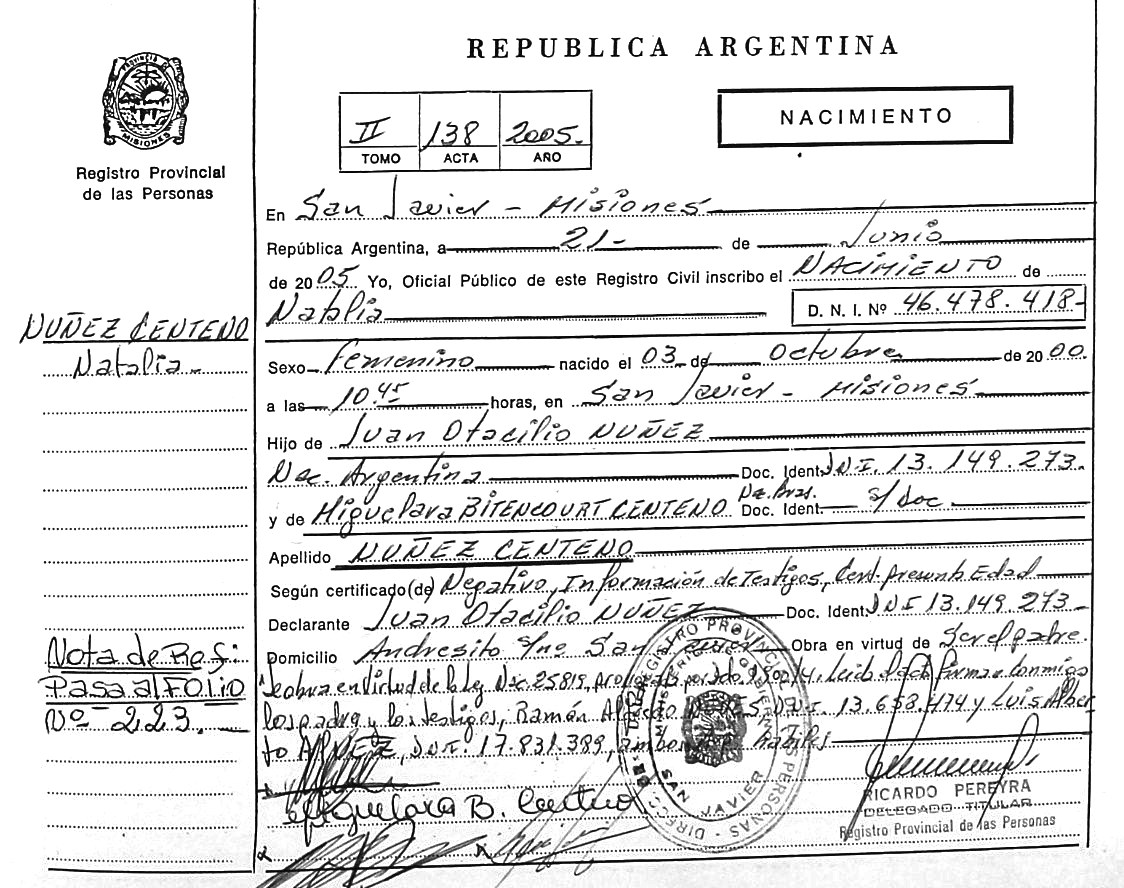 REPUBLICA ARGENTINA
PROVINCIA DE
MISIONES
Registro Provincial
de las Personas
II 138 2005.
TOMO ACTA AÑO
NACIMIENTO
En San Javier - Misiones
República Argentina, a 21- de Junio
de 2005 Yo, Oficial Público de este Registro Civil inscribo el NACIMIENTO de
Natalia D. N. I. Nº 46.478.418-
NUÑEZ CENTENO
Natalia -
Sexo Femenino nacido el 03 de Octubre de 2000
a las 10.45 horas, en San Javier - Misiones
Hijo de Juan Otacilio NUÑEZ
Nac. Argentina Doc. Ident. D.N.I. 13.149.273.
y de Miguelara BITENCOURT CENTENO Na. Bras. Doc. Ident. s/Doc
Apellido NUÑEZ CENTENO
Según certificado(de) Negativo, Información de Testigos, Cert. presunta Edad
Declarante Juan Otacilio NUÑEZ Doc. Ident. D.N.I 13.149.273
Domicilio Andresito s/nº San Javier Obra en virtud de Ser el padre.
Se obra en virtud de la Ley Nac. 25819, Leida el acta firman conmigo
los padres y los testigos, Ramón D.N.I. 13.658.474 y Luis Alber
to D.N.I. 17.831.389, ambos hábiles
Nota de Ref:
Pasa al Folio
Nº 223.
Miguelara B. Centeno
REGISTRO PROVINCIAL DE LAS PERSONAS
SAN JAVIER
RICARDO PEREYRA
DELEGADO TITULAR
Registro Provincial de las Personas